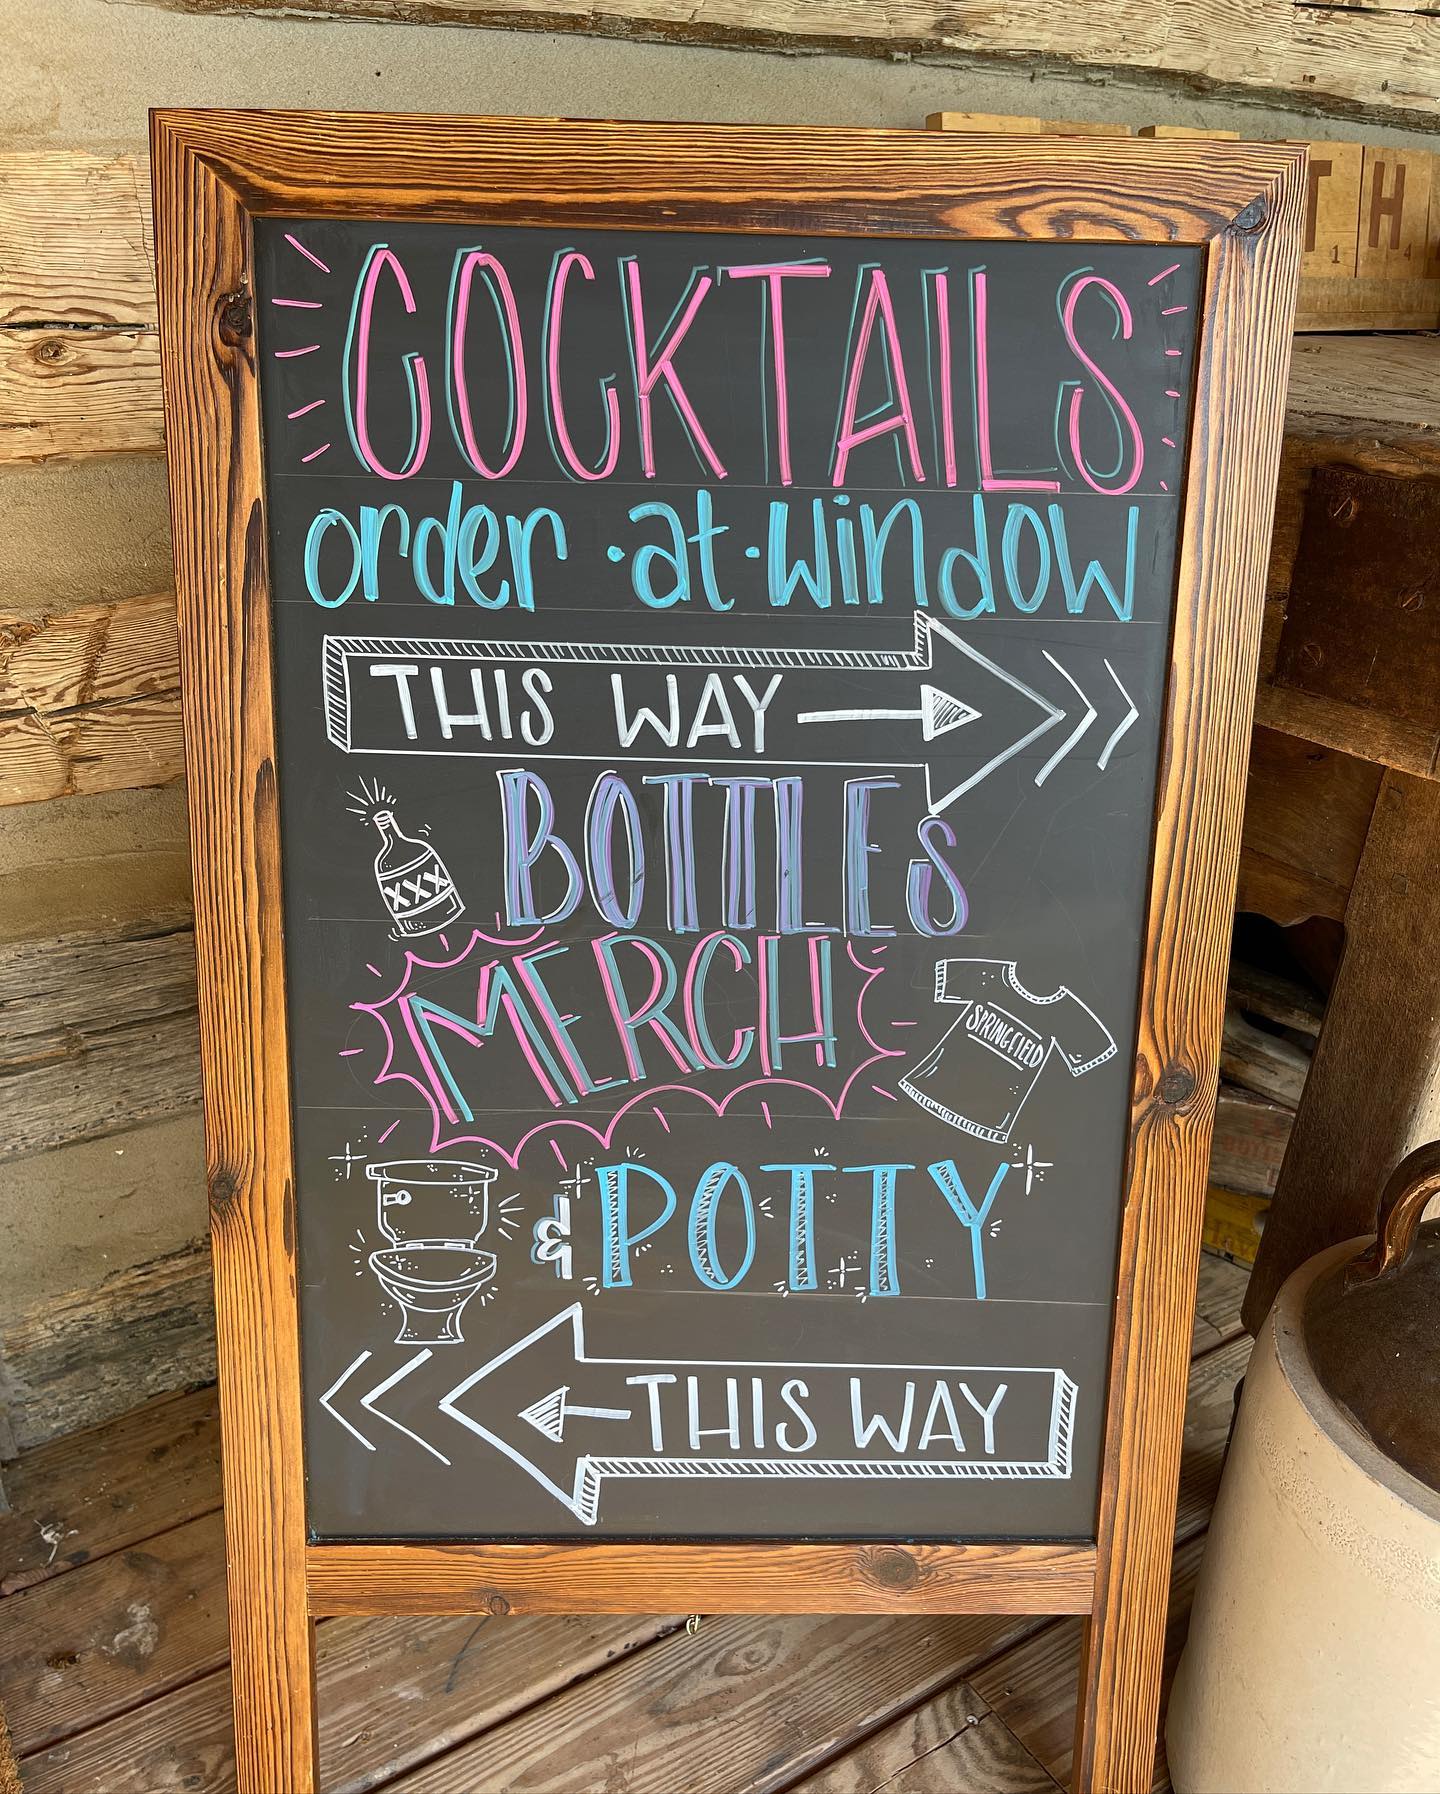 COCKTAILS
order · at · window
THIS WAY
BOTTLES
XXX
MERCH
SPRINGFIELD
& POTTY
THIS WAY
T 1 H 4